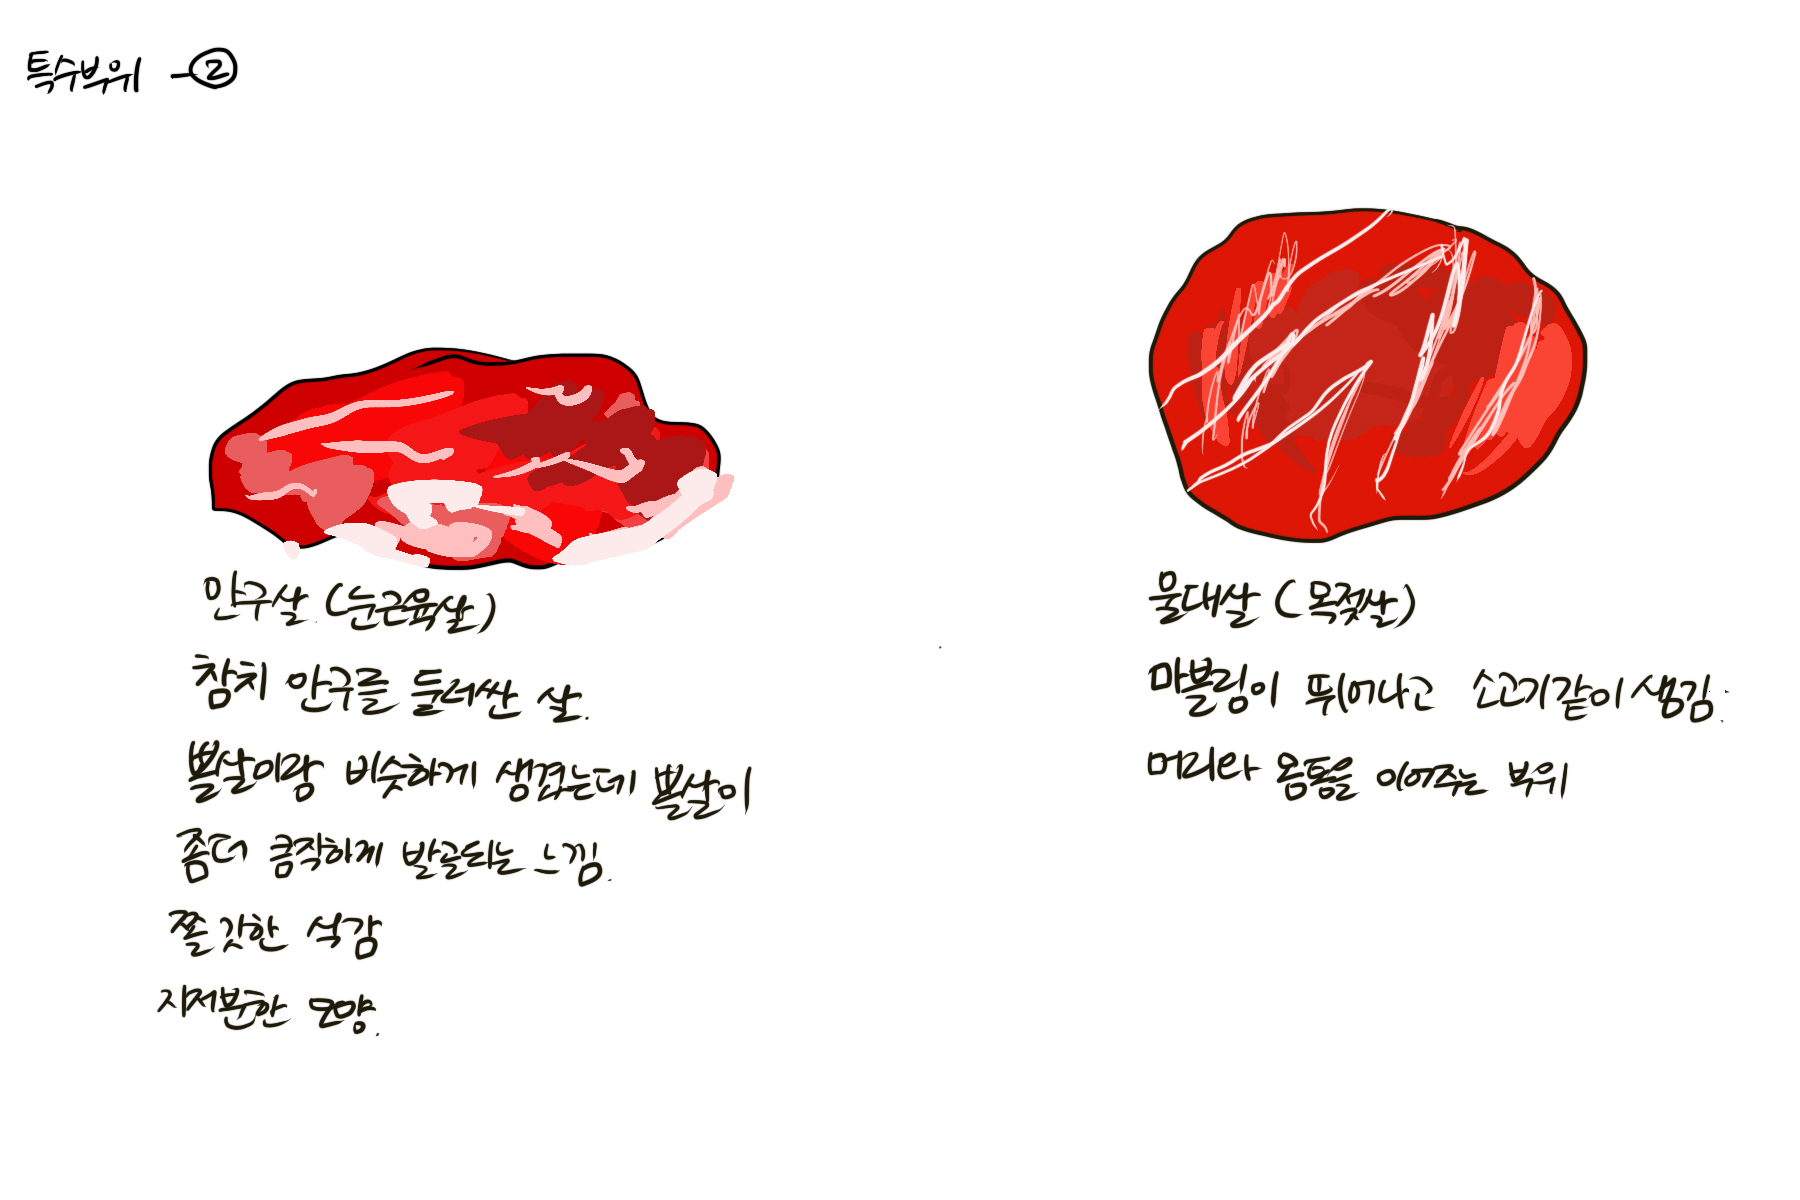 특수부위 -②
안구살 (눈근육살)
참치 안구를 둘러싼 살.
뽈살이랑 비슷하게 생겼는데 뽈살이
좀더 큼직하게 발골되는 느낌.
쫄깃한 식감
지저분한 모양.
울대살 (목젖살)
마블링이 뛰어나고 소고기같이 생김.
머리와 몸통을 이어주는 부위